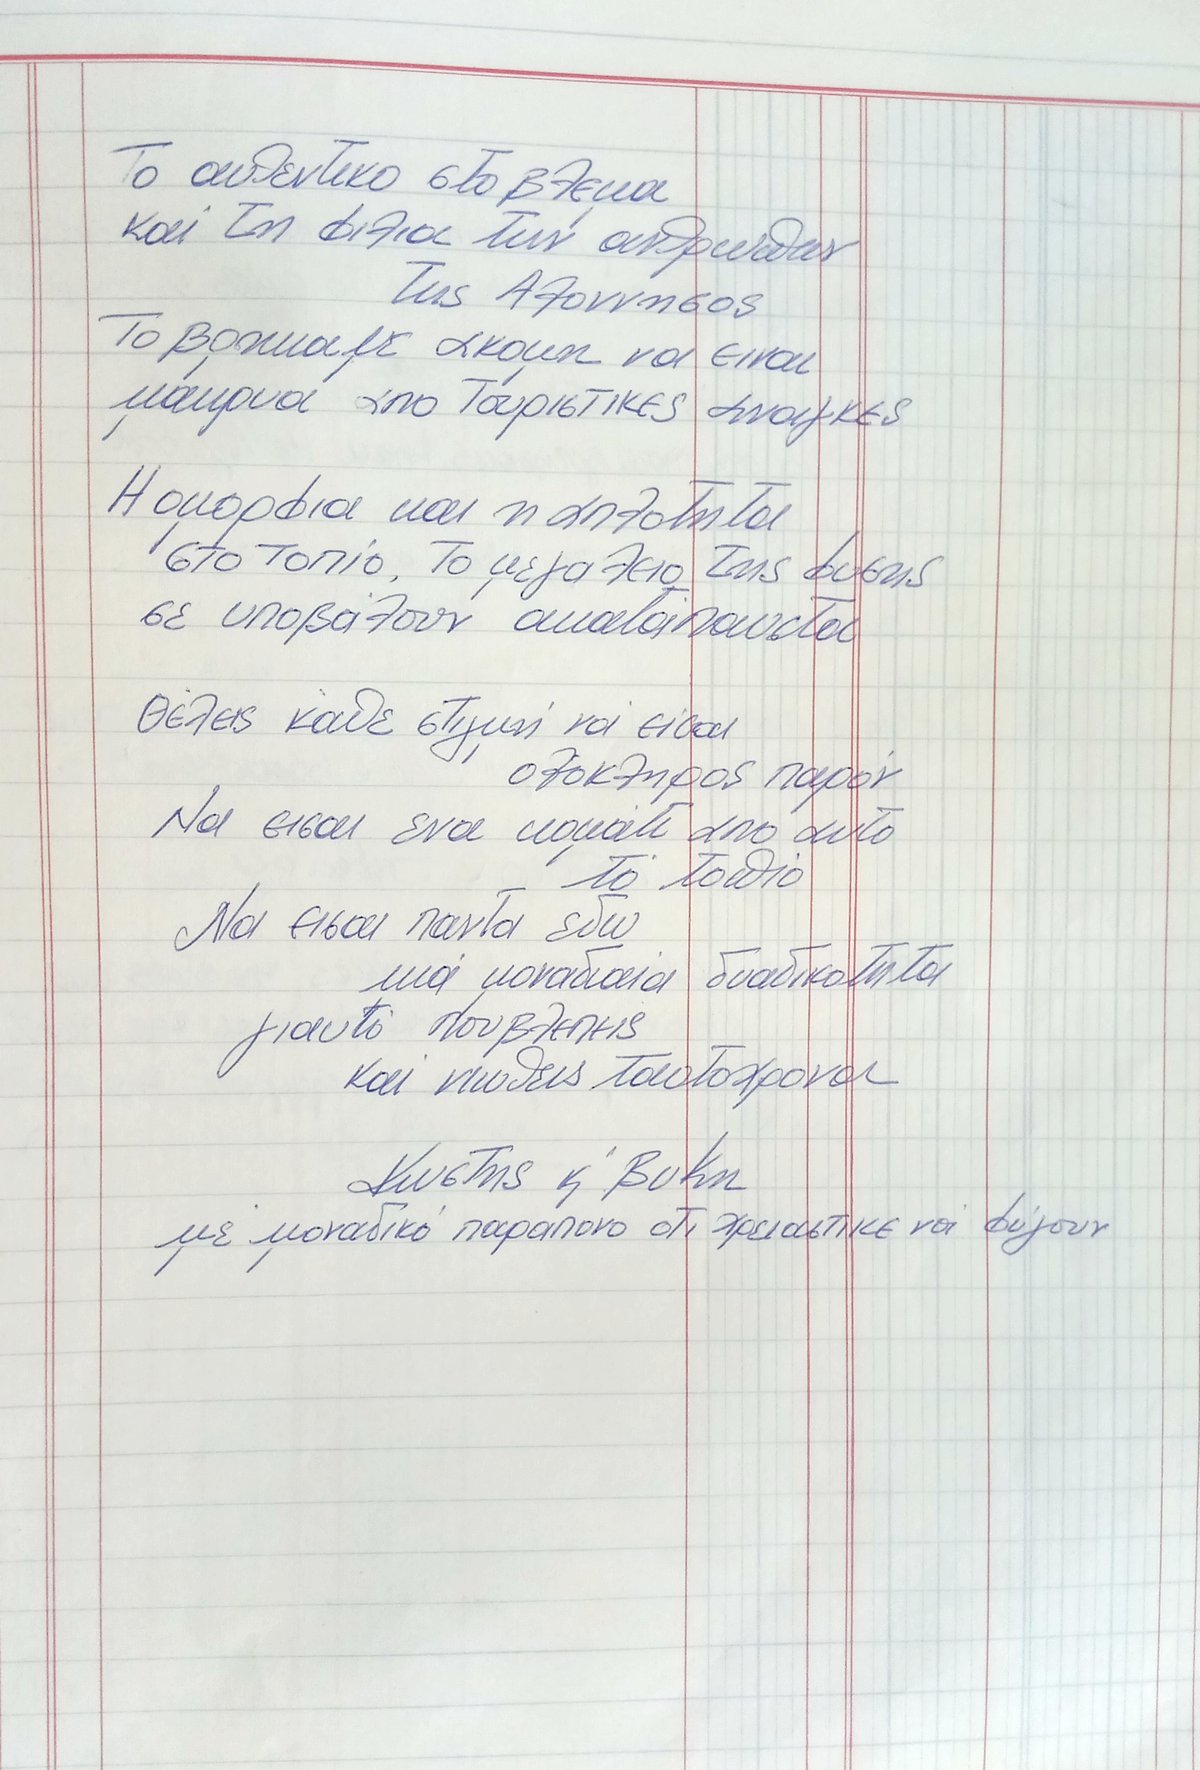 Το αυθεντικο στο βλεμα
και τη φιλια των ανθρωπων
της Αλοννησος
Το βρηκαμε ακομη να ειναι
μακρυα απο τουριστικες αναγκες
Η ομορφια και η απλοτητα
στο τοπίο. Το μεγαλειο της φυσης
σε υποβάλουν ακατάπαυστα
Θέλεις κάθε στιγμή νά είσαι
ολοκληρος παρόν
Να εισαι ενα κομάτι απο αυτο
τό τοπίο
Να εισαι παντα εδω
μιά μοναδιαία δυαδικοτητα
γιαυτό που βλεπεις
καί νιωθεις ταυτοχρονα
Κωστης κ' Βυκη
μέ μοναδικό παραπονο οτι χρειαστικε νά φύγουν